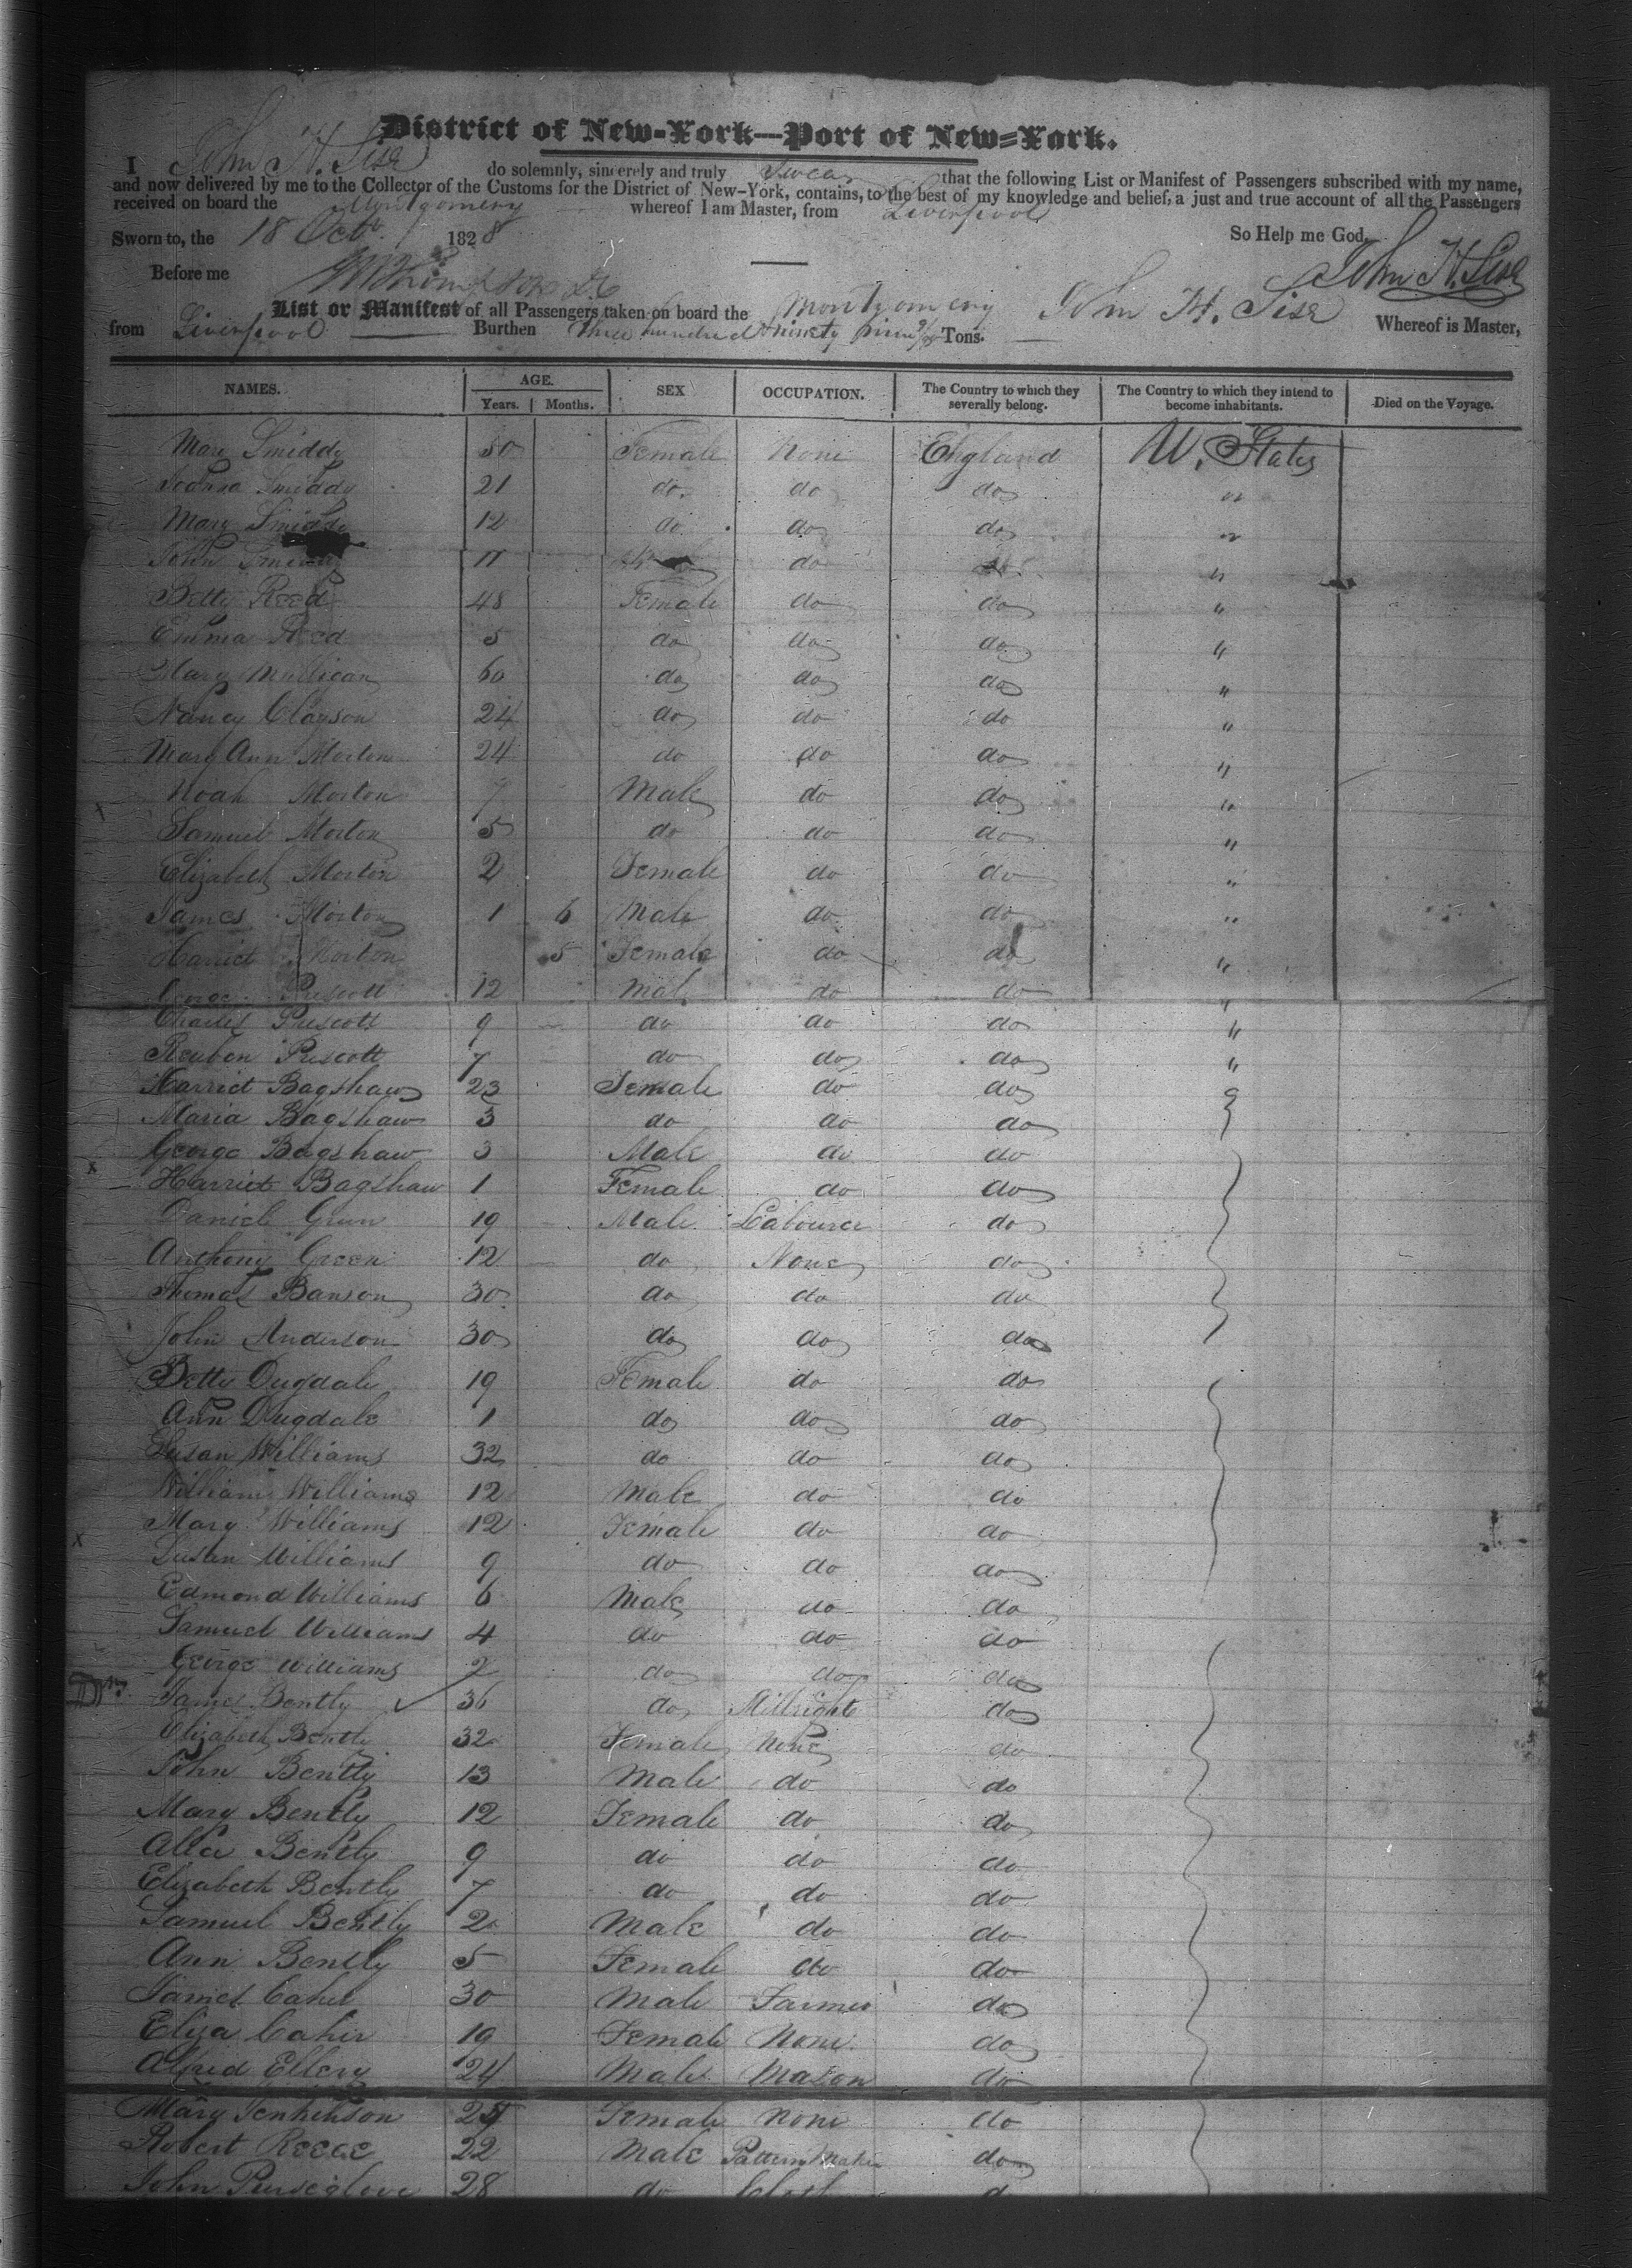 District of New-York—Port of New-York.
I John H. Sise do solemnly, sincerely and truly Swear that the following List or Manifest of Passengers subscribed with my name,
and now delivered by me to the Collector of the Customs for the District of New-York, contains, to the best of my knowledge and belief, a just and true account of all the Passengers
received on board the Montgomery whereof I am Master, from Liverpool
Sworn to, the 18 Octr 1828 So Help me God.
Before me John H. Sise
List or Manifest of all Passengers taken on board the Montgomery John H. Sise Whereof is Master,
from Liverpool Burthen three hundred & ninety nine Tons.
NAMES. AGE. Years. Months. SEX OCCUPATION. The Country to which they severally belong. The Country to which they intend to become inhabitants. Died on the Voyage.
Mary Smiddy 50 Female None England U. States
Joanna Smiddy 21 do. do do "
Mary Smiddy 12 do do do "
John Smiddy 11 do "
Betty Reed 48 Female do do "
Emma Reed 5 do do do "
Mary Mulligan 60 do do do "
Nancy Clayson 24 do do do "
Mary Ann Morton 24 do do do "
Noah Morton 7 Male do do "
Samuel Morton 5 do do do "
Elizabeth Morton 2 Female do do "
James Morton 1 6 Male do do "
Harriet Morton 5 Female do do "
George Prescott 12 Male do do "
Charles Prescott 9 do do do "
Reuben Prescott 7 do do do "
Harriet Bagshaw 23 Female do do
Maria Bagshaw 3 do do do
George Bagshaw 3 Male do do
Harriet Bagshaw 1 Female do do
Daniel Green 19 Male Labourer do
Anthony Green 12 do None do
Thomas Banson 30 do do do
John Anderson 30 do do do
Betty Dugdale 19 Female do do
Ann Dugdale 1 do do do
Susan Williams 32 do do do
William Williams 12 Male do do
Mary Williams 12 Female do do
Susan Williams 9 do do do
Edmond Williams 6 Male do do
Samuel Williams 4 do do do
George Williams 2 do do do
James Bently 36 do Millright do
Elizabeth Bently 32 Female None do
John Bently 13 Male do do
Mary Bently 12 Female do do
Alice Bently 9 do do do
Elizabeth Bently 7 do do do
Samuel Bently 2 Male do do
Ann Bently 5 Female do do
James Cahir 30 Male Farmer do
Eliza Cahir 19 Female None do
Alfred Ellery 24 Male Mason do
Mary Jenkinson 24 Female None do
Robert Reece 22 Male Pattern Maker do
John Purseglove 28 do